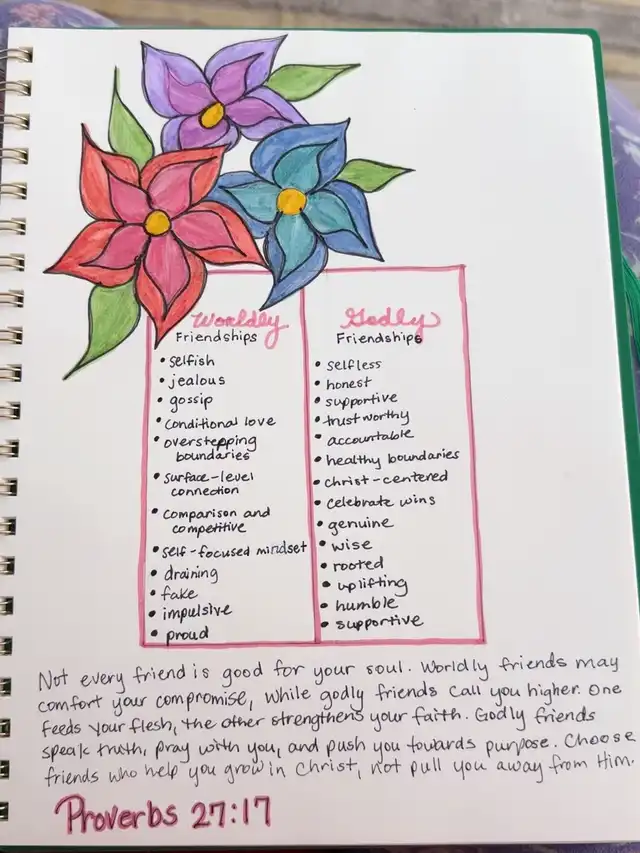 Worldly
Friendships
• selfish
• jealous
• gossip
• conditional love
• overstepping
boundaries
• surface-level
connection
• comparison and
competitive
• self-focused mindset
• draining
• fake
• impulsive
• proud
Godly
Friendships
• selfless
• honest
• supportive
• trustworthy
• accountable
• healthy boundaries
• christ-centered
• celebrate wins
• genuine
• wise
• rooted
• uplifting
• humble
• supportive
Not every friend is good for your soul. Worldly friends may
comfort your compromise, while godly friends call you higher. One
feeds your flesh, the other strengthens your faith. Godly friends
speak truth, pray with you, and push you towards purpose. Choose
friends who help you grow in Christ, not pull you away from Him.
Proverbs 27:17